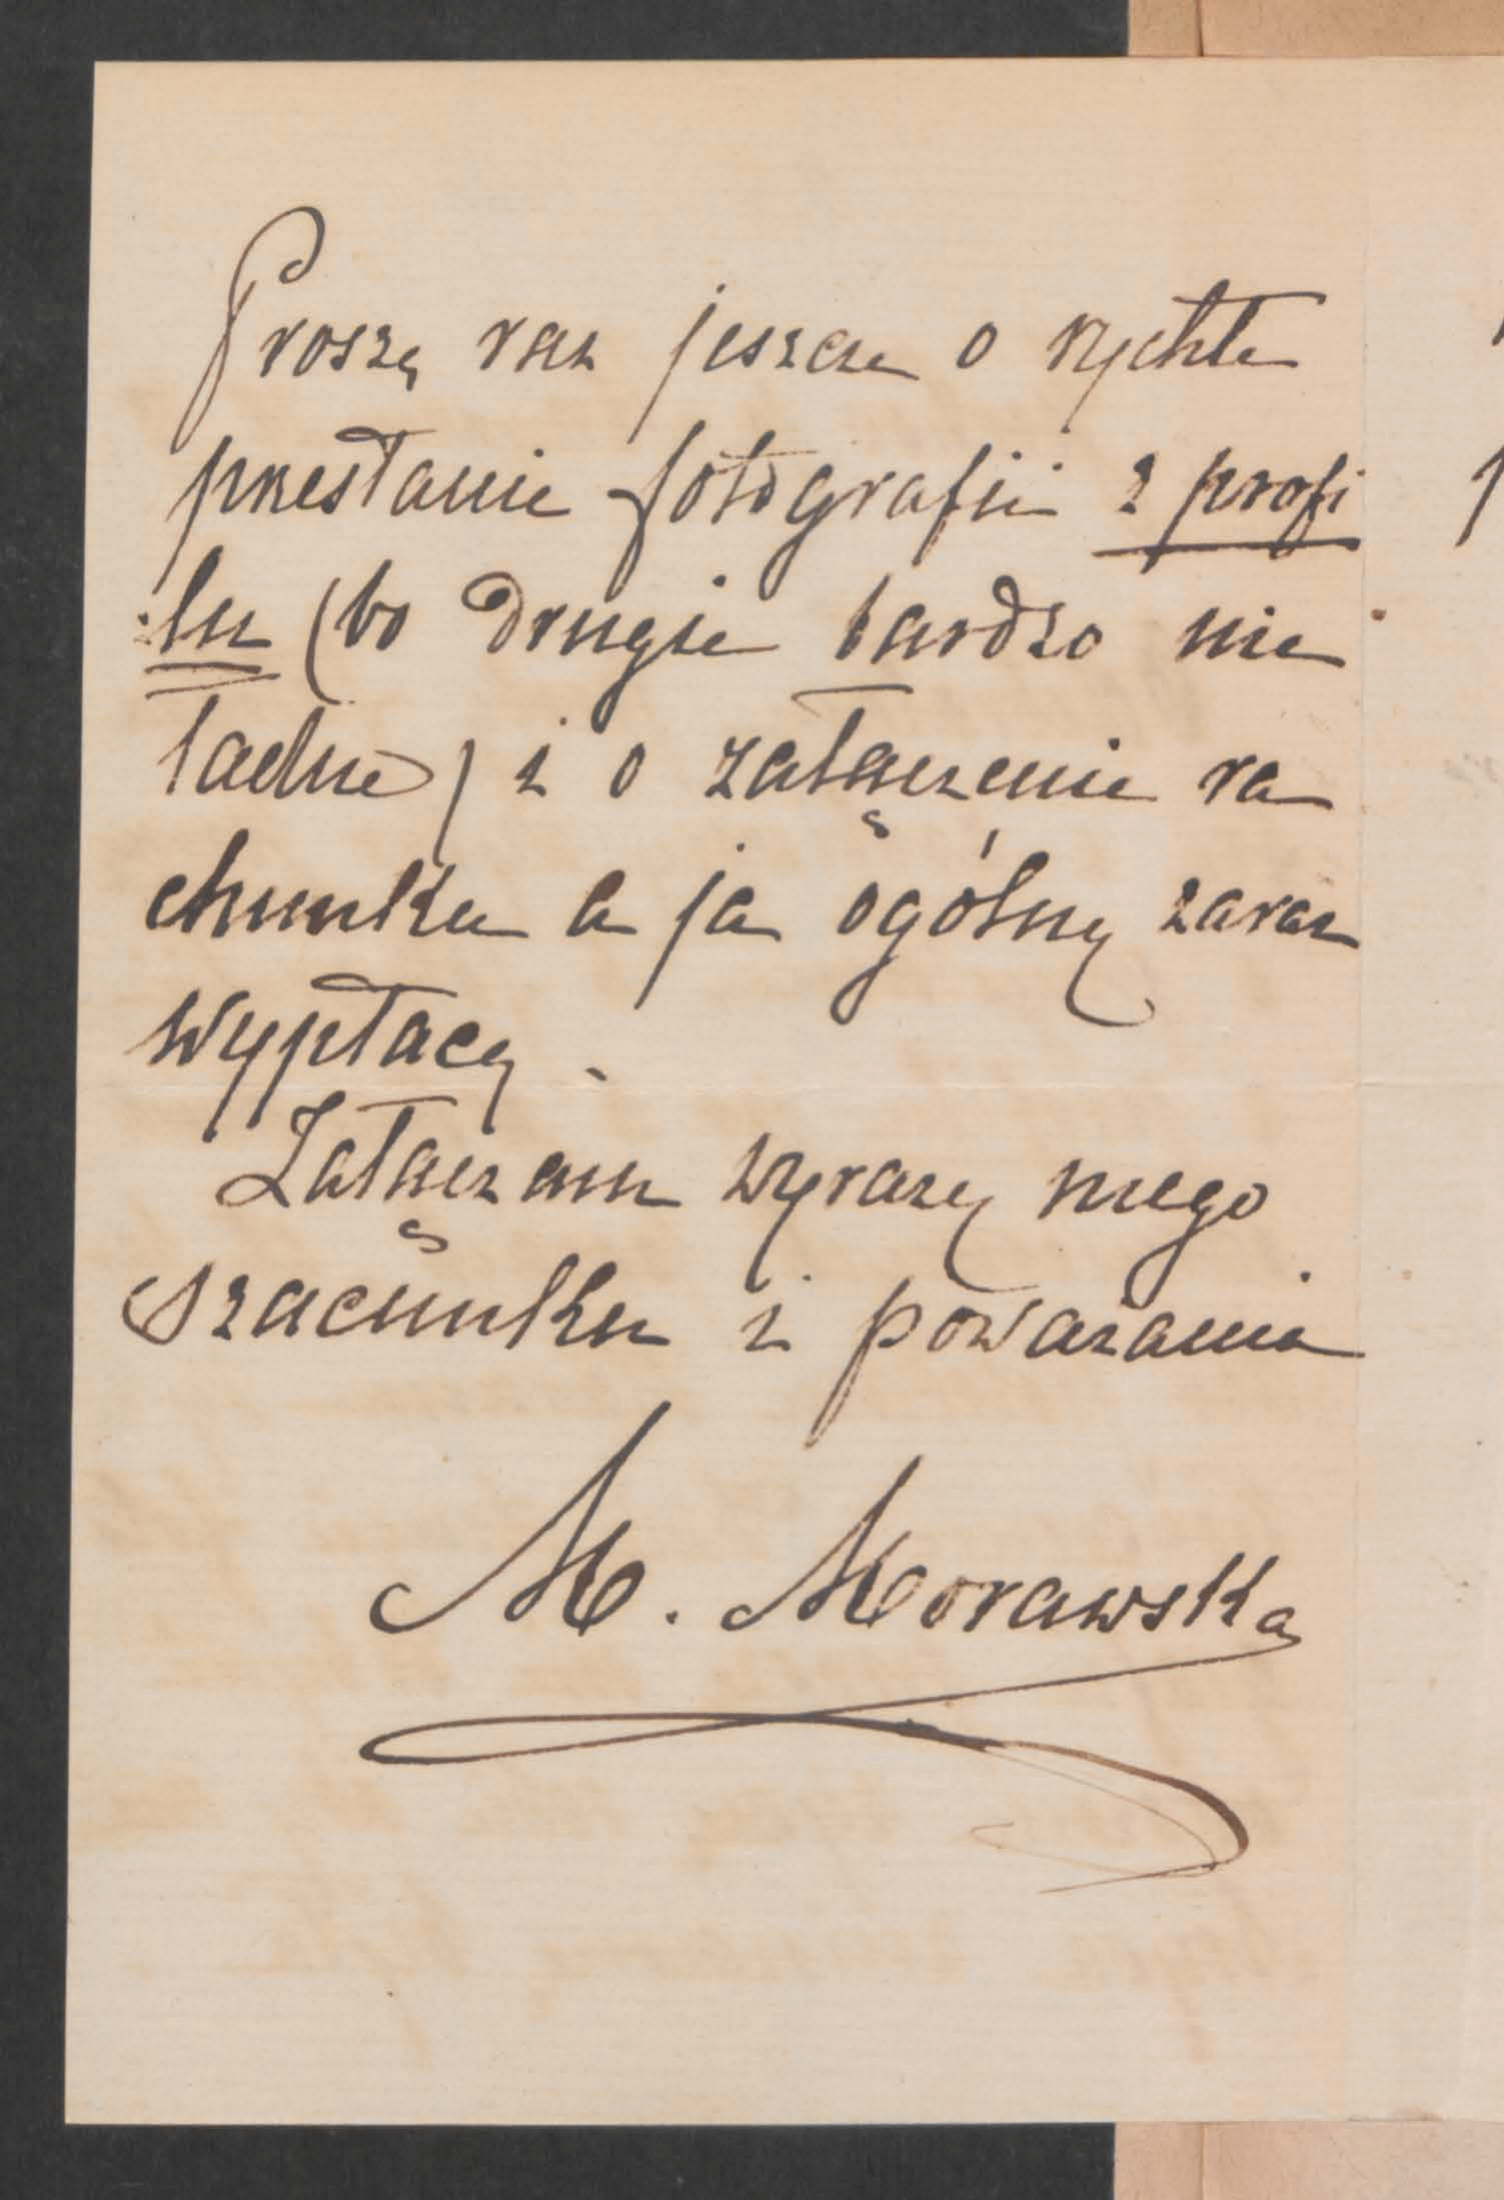 Proszę raz jeszcze o rychłe
przesłanie fotografii z profi
lu (bo drugie bardzo nie
ładne) i o załączenie ra
chunku a ja ogólny zaraz
wypłacę.
Załączam wyrazy mego
szacunku i poważania
M. Morawska